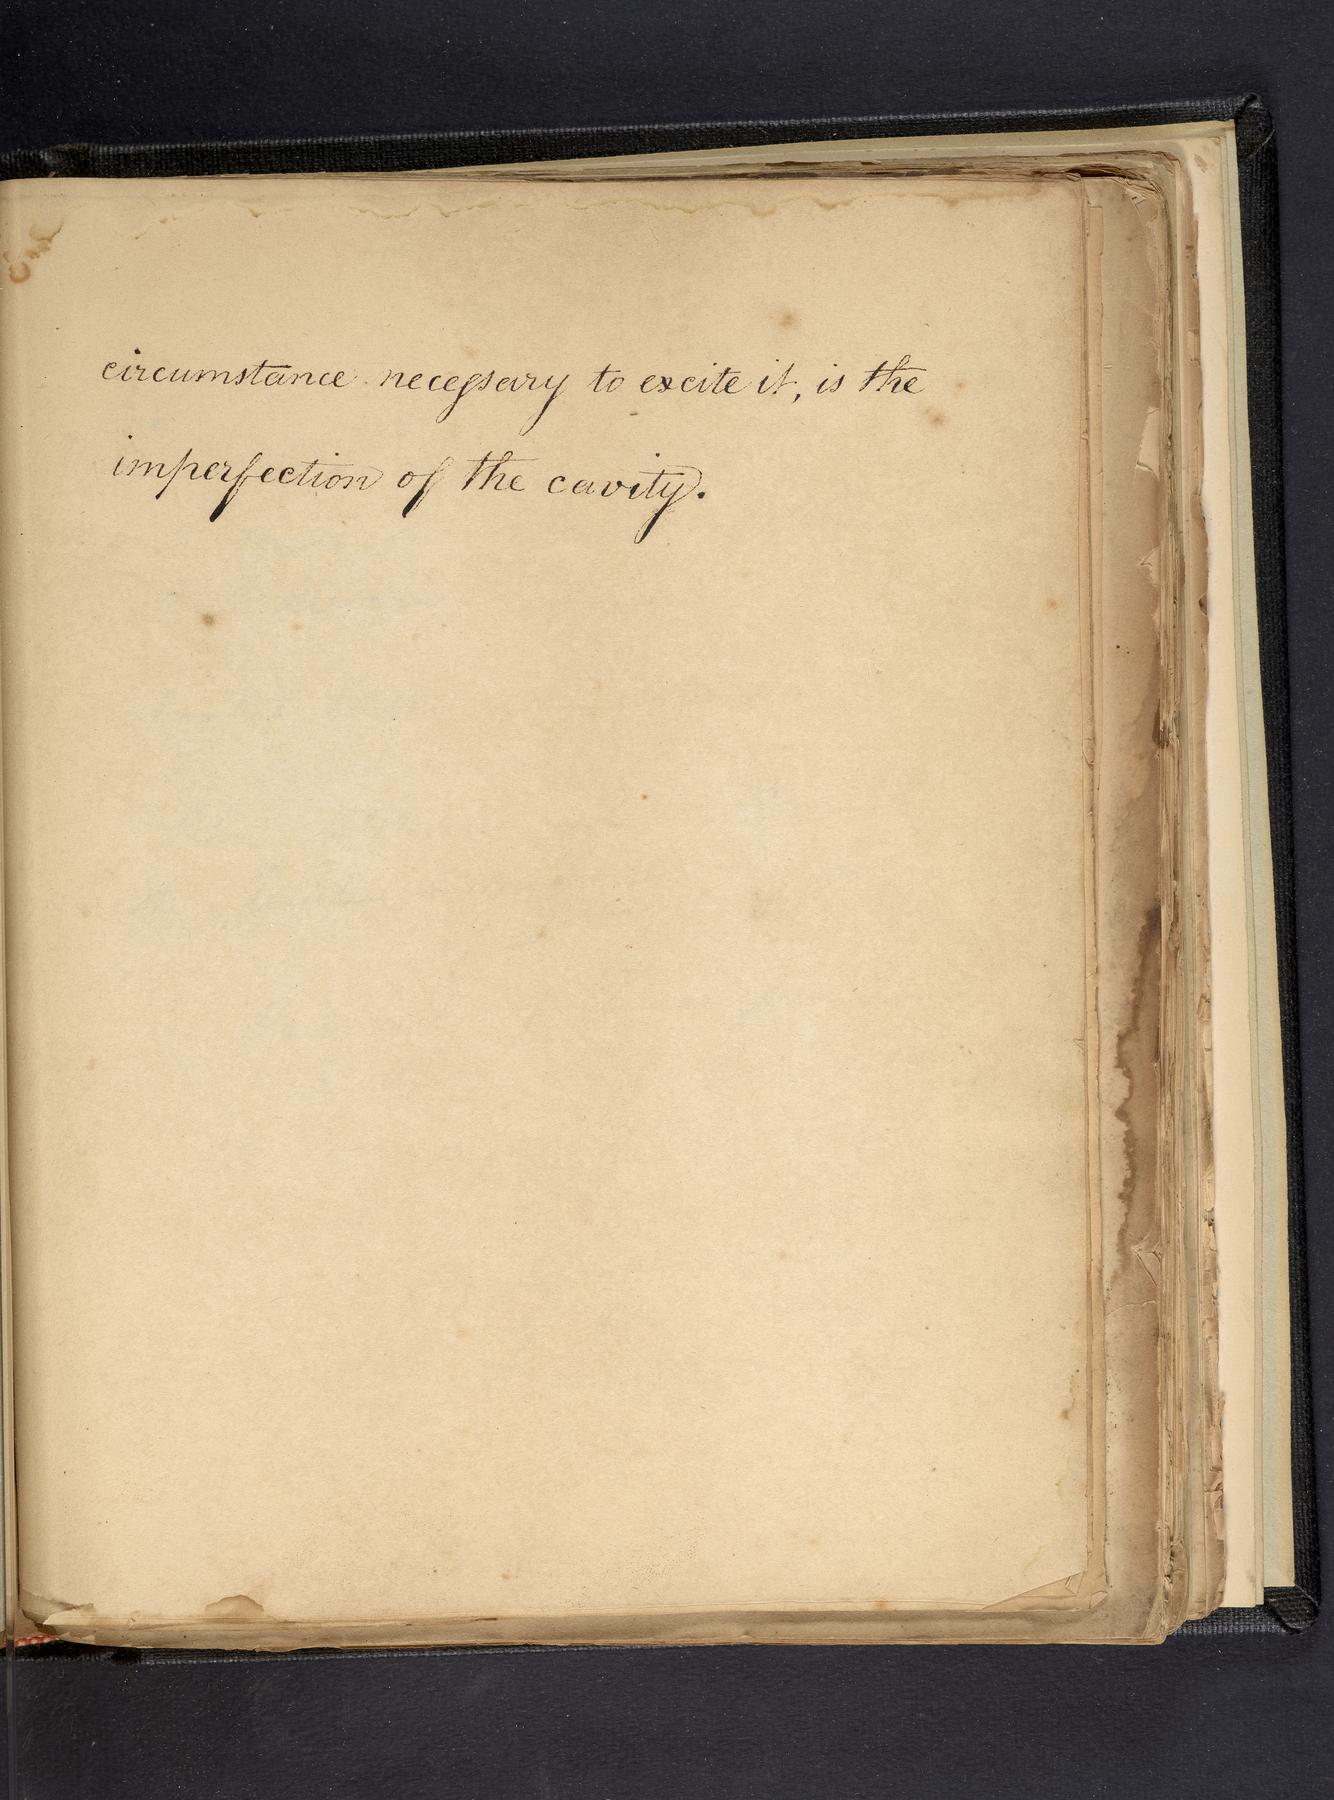 circumstance necessary to excite it, is the
imperfection of the cavity.